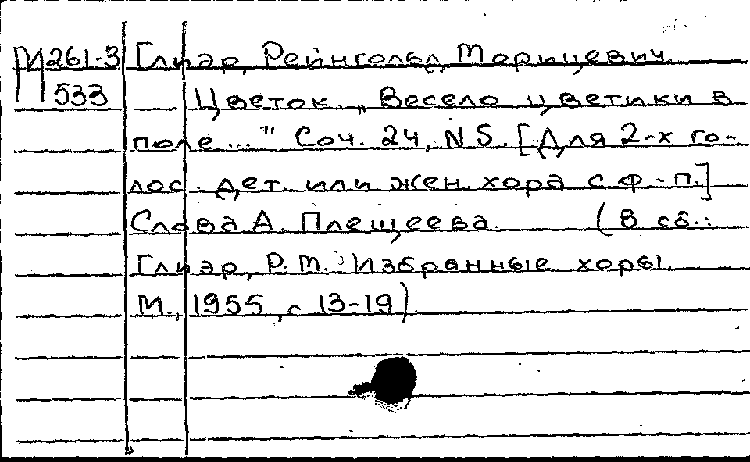 М261-3 Глиэр, Рейнгольд Морицевич.
533 Цветок „Весело цветики в
поле..." Соч. 24, N 5. [Для 2-х го-
лос. дет. или жен. хора с ф.-п.]
Слова А. Плещеева. (В сб.:
Глиэр, Р.М. Избранные хоры.
М., 1955, с 13-19)